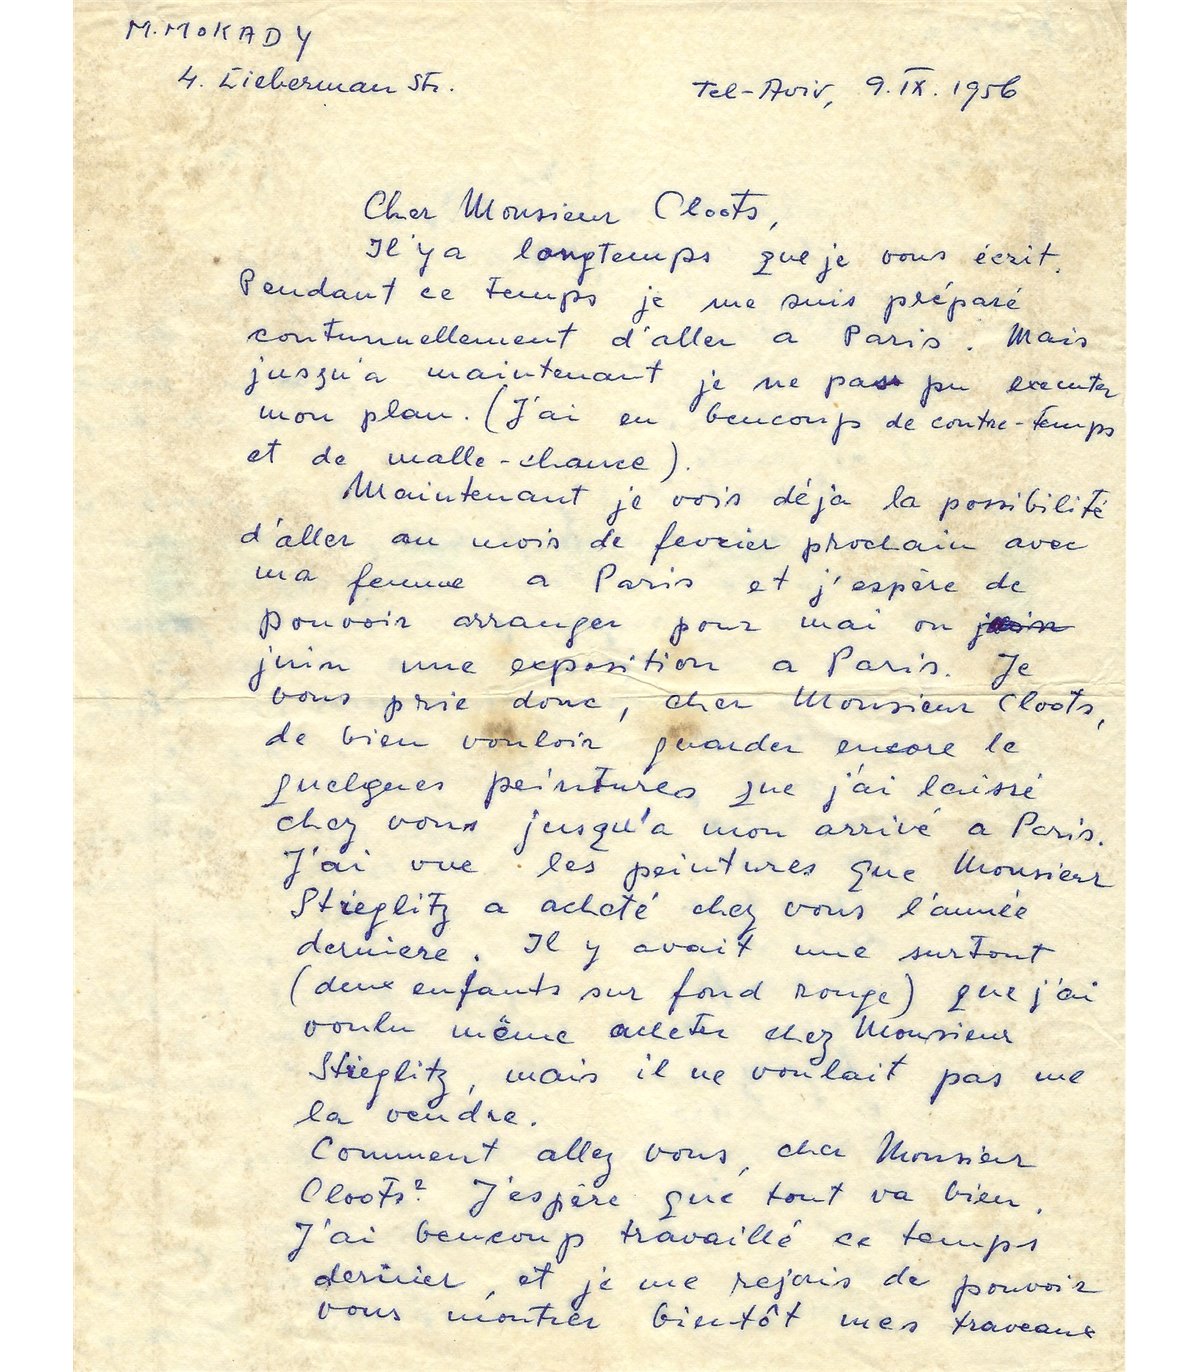 M. MOKADY
4. Lieberman Str.
Tel-Aviv, 9.IX.1956
Cher Monsieur Cloots,
Il y a longtemps que je vous écrit.
Pendant ce temps je me suis préparé
continuellement d'aller a Paris. Mais
jusqu'a maintenant je ne pas pu executer
mon plan. (J'ai eu beucoups de contre-temps
et de malle-chance).
Maintenant je vois déja la possibilité
d'aller au mois de fevrier prochain avec
ma femme a Paris et j'espère de
pouvoir arranger pour mai ou
juin une exposition a Paris. Je
vous prie donc, cher Monsieur Cloots,
de bien vouloir guarder encore le
quelques peintures que j'ai laissé
chez vous jusqu'a mon arrivé a Paris.
J'ai vue les peintures que Monsieur
Stieglitz a acheté chez vous l'année
derniere. Il y avait une surtout
(deux enfants sur fond rouge) que j'ai
voulu même acheter chez Monsieur
Stieglitz, mais il ne voulait pas me
la vendre.
Comment allez vous, cher Monsieur
Cloots? J'espère que tout va bien.
J'ai beucoup travaillé ce temps
dernier et je me rejois de pouvoir
vous montrer bientôt mes traveaux